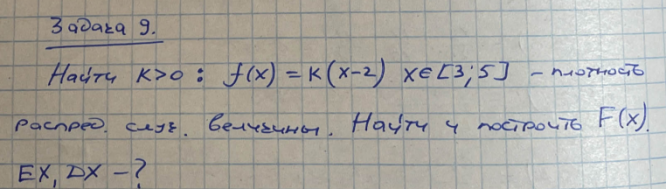 Задача 9.
Найти K>0 : f(x) = K(x-2) x∈[3;5] - плотность
распред. случ. величины. Найти и построить F(x).
EX, DX - ?